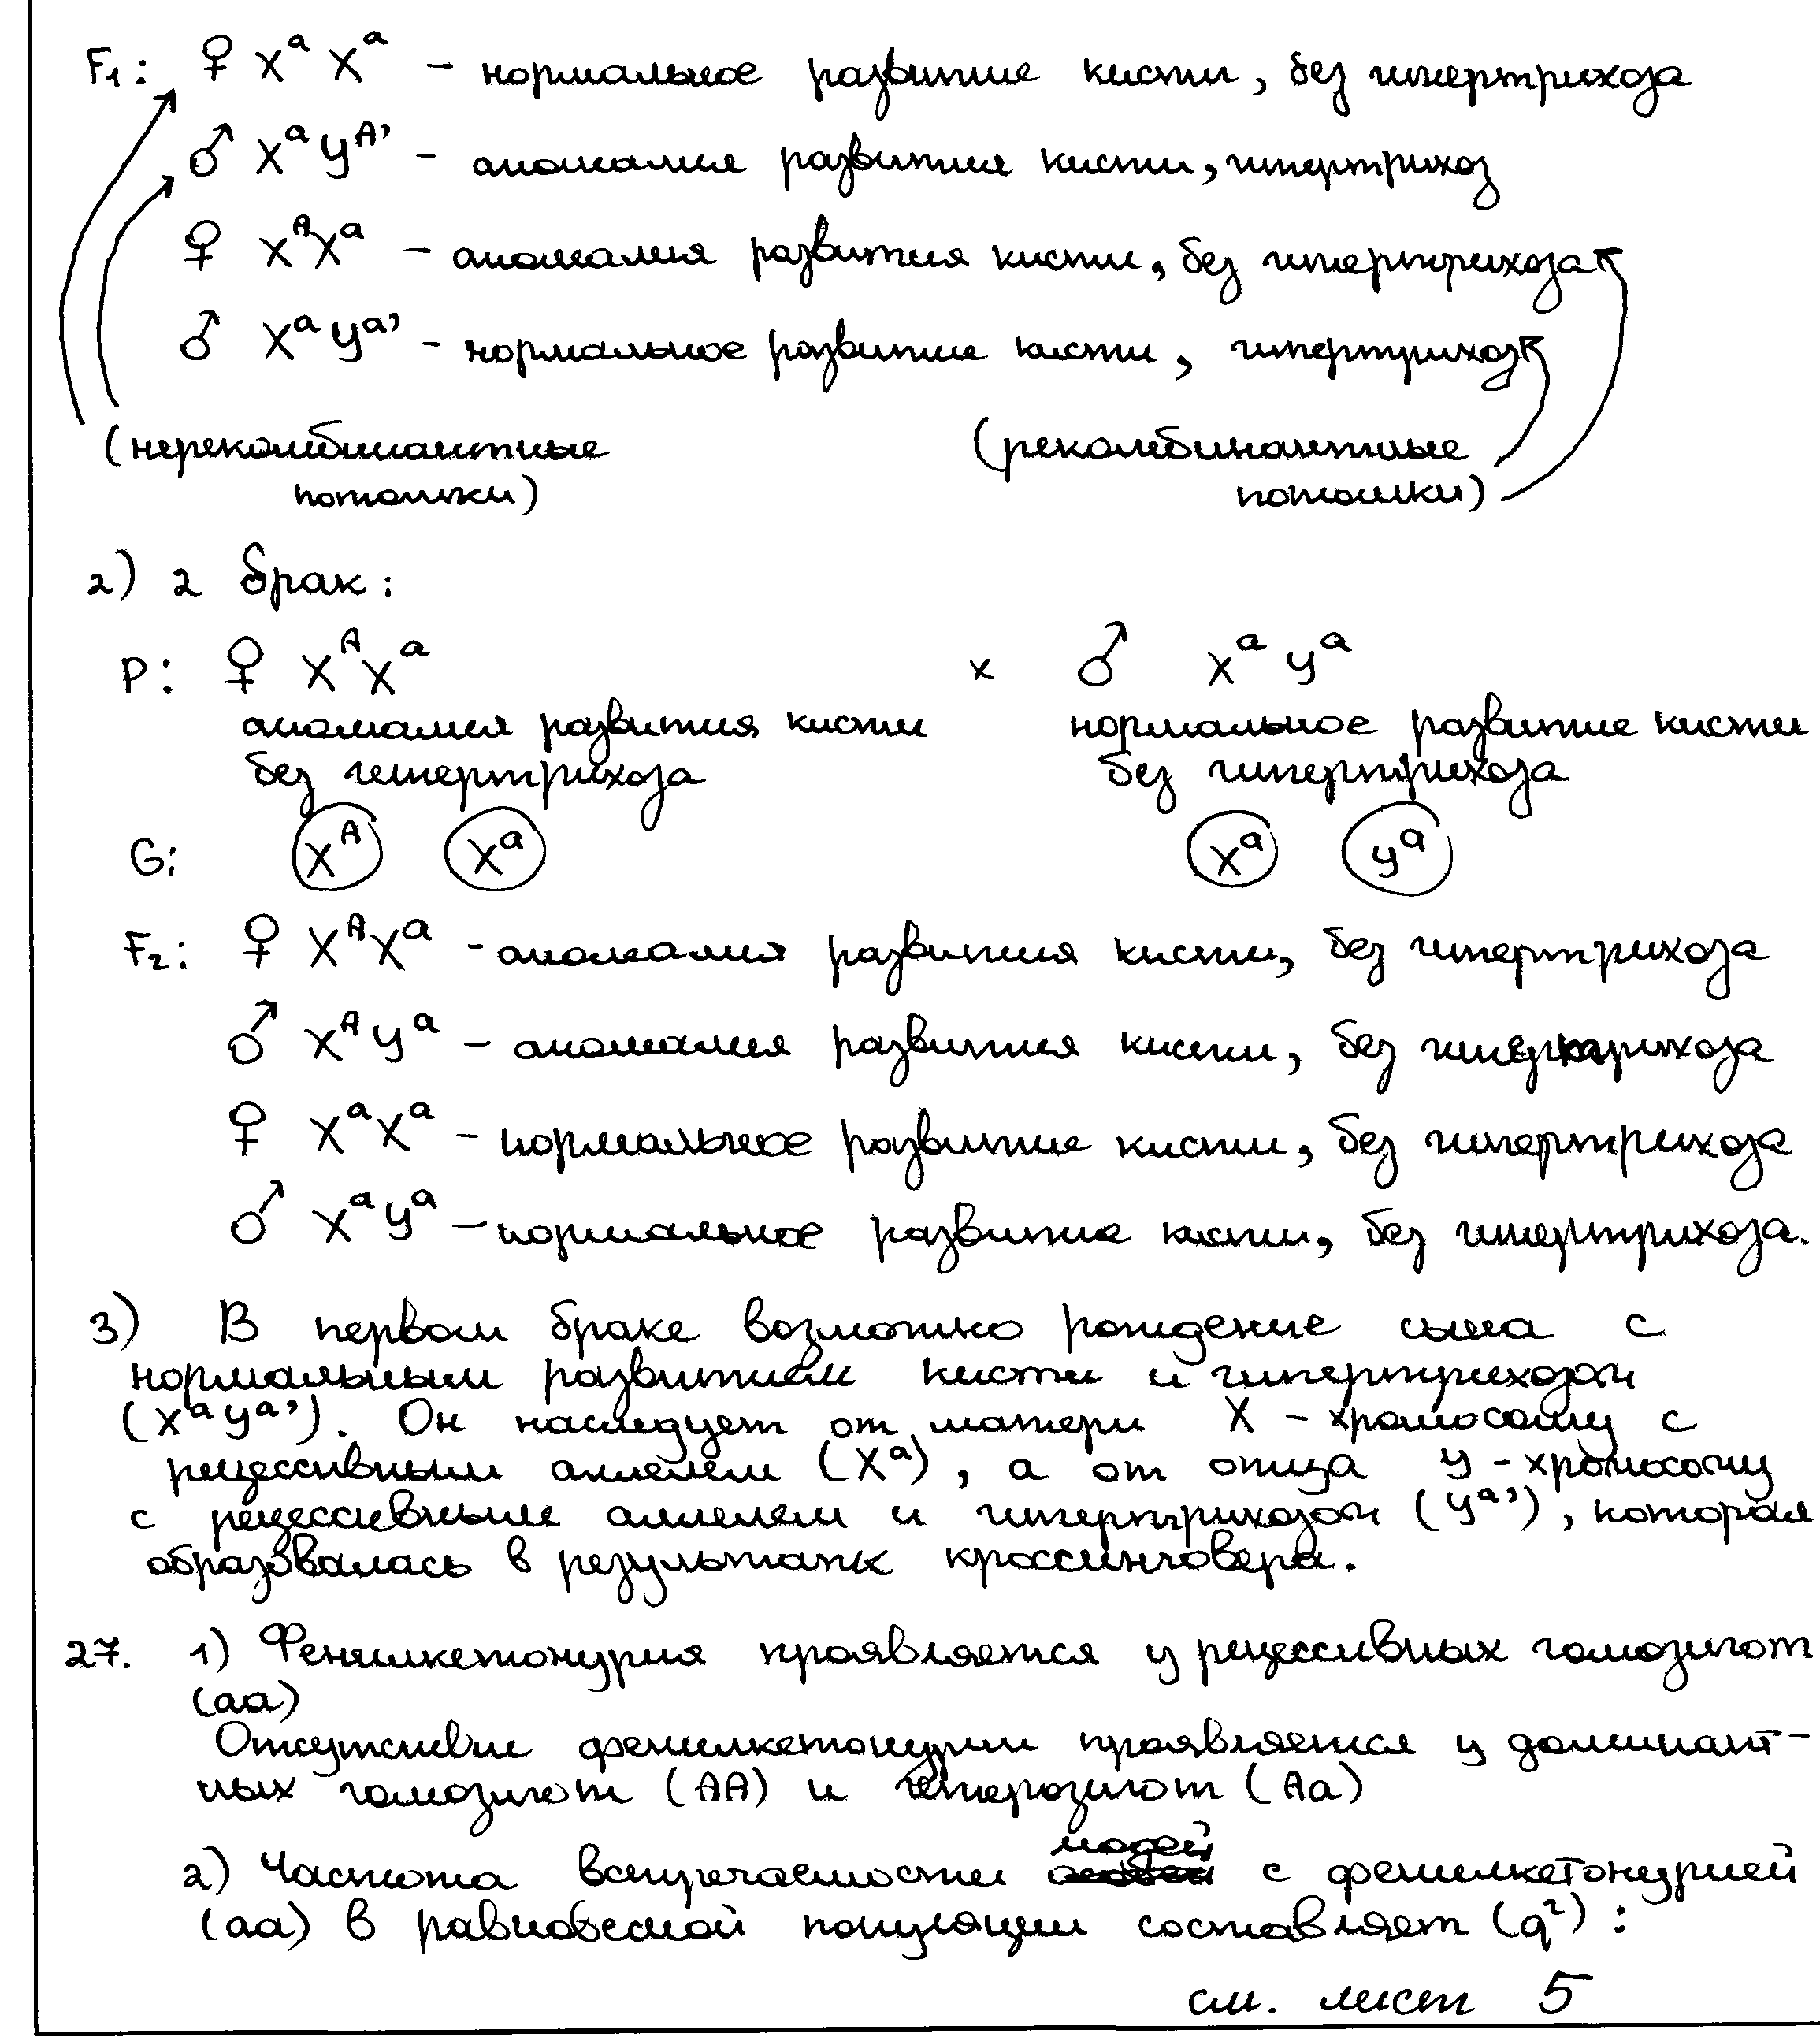 F₁: ♀ XᵃXᵃ – нормальное развитие кисти, без гипертрихоза
♂ XᵃYᴬ' – аномалия развития кисти, гипертрихоз
♀ XᴬXᵃ – аномалия развития кисти, без гипертрихоза
♂ XᵃYᵃ' – нормальное развитие кисти, гипертрихоз
(нерекомбинантные (рекомбинантные
потомки) потомки)
2) 2 брак:
P: ♀ XᴬXᵃ x ♂ XᵃYᵃ
аномалия развития кисти нормальное развитие кисти
без гипертрихоза без гипертрихоза
G: Xᴬ Xᵃ Xᵃ Yᵃ
F₂: ♀ XᴬXᵃ – аномалия развития кисти, без гипертрихоза
♂ XᴬYᵃ – аномалия развития кисти, без гипертрихоза
♀ XᵃXᵃ – нормальное развитие кисти, без гипертрихоза
♂ XᵃYᵃ – нормальное развитие кисти, без гипертрихоза.
3) В первом браке возможно рождение сына с
нормальным развитием кисти и гипертрихозом
(XᵃYᵃ'). Он наследует от матери X – хромосому с
рецессивным аллелем (Xᵃ), а от отца Y – хромосому
с рецессивным аллелем и гипертрихозом (Yᵃ'), которая
образовалась в результате кроссинговера.
27. 1) Фенилкетонурия проявляется у рецессивных гомозигот
(aa)
Отсутствие фенилкетонурии проявляется у доминант-
ных гомозигот (AA) и гетерозигот (Aa)
людей
2) Частота встречаемости особей с фенилкетонурией
(aa) в равновесной популяции составляет (q²):
см. лист 5